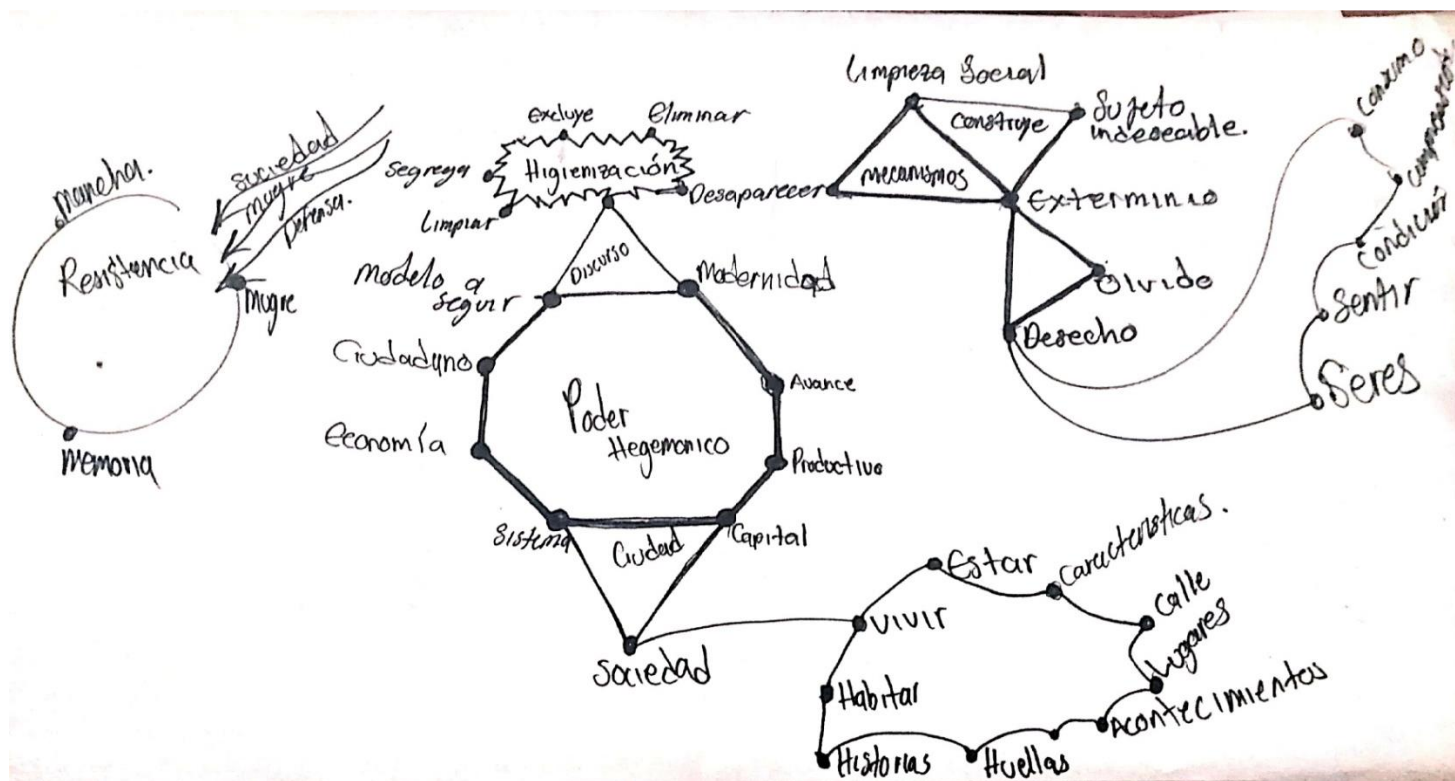 mancha.
Resistencia
Mugre
Memoria
suciedad
mugre
Defensa.
Excluye
Eliminar
Segrega
Higienización
Desaparecer
Limpiar
Discurso
Modelo a
seguir
Modernidad
Ciudadano
Avance
Economía
Poder
Hegemonico
Productivo
Sistema
Ciudad
Capital
Sociedad
Limpieza Social
construye
Sujeto
indeseable.
mecanismos
Exterminio
Olvido
Desecho
Consumo
Condición
Sentir
Seres
Estar
Características.
Vivir
Calle
Lugares
Habitar
Acontecimientos
Historias
Huellas